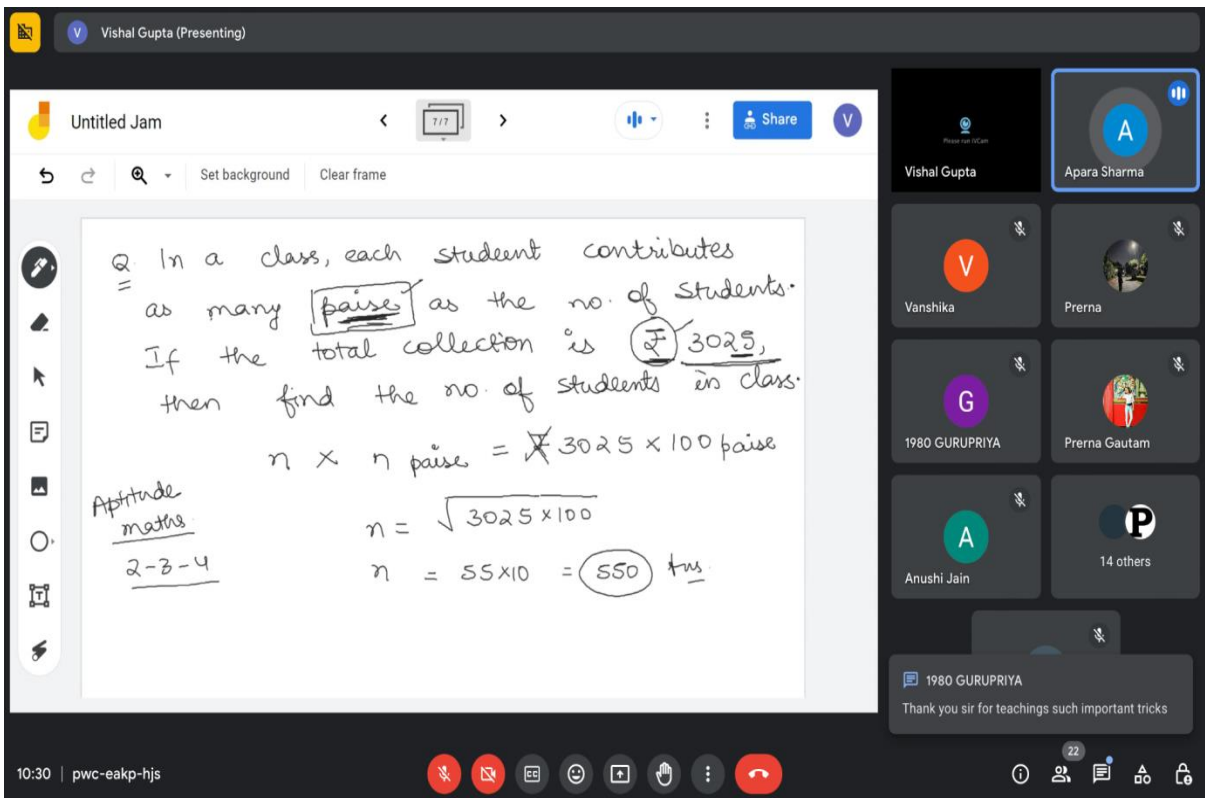 V Vishal Gupta (Presenting)
Untitled Jam
7/7
Share
V
Set background Clear frame
Q. In a class, each studeent contributes
as many paise as the no. of students.
If the total collection is ₹ 3025,
then find the no. of studeents in class.
n × n paise = ₹ 3025 × 100 paise
Aptitude
maths.
2-3-4
n = √3025 × 100
n = 55×10 = 550 Ans.
Please run iVCam
Vishal Gupta
A
Apara Sharma
V
Vanshika
Prerna
G
1980 GURUPRIYA
Prerna Gautam
A
Anushi Jain
P
14 others
1980 GURUPRIYA
Thank you sir for teachings such important tricks
10:30 | pwc-eakp-hjs
CC
22